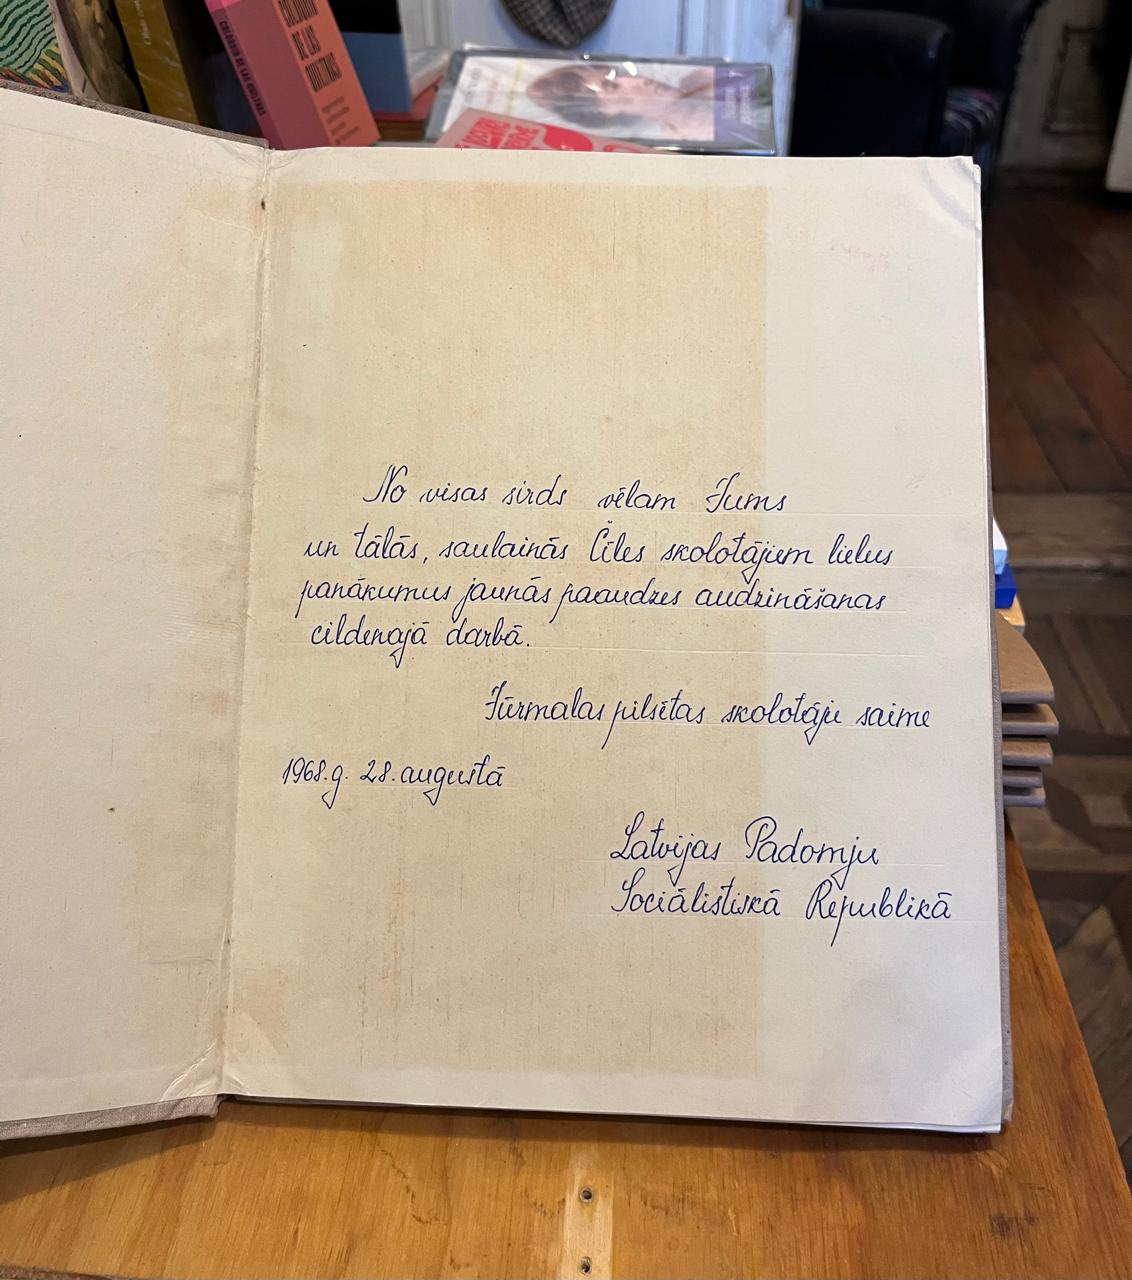 COLOQUIO DE LAS QUILTRAS
DE LAS
QUILTRAS
No visas sirds vēlam Jums
un tālās, saulainās Čīles skolotājiem lielus
panākumus jaunās paaudzes audzināšanas
cildenajā darbā.
Jūrmalas pilsētas skolotāju saime
1968.g. 28. augustā
Latvijas Padomju
Sociālistiskā Republikā